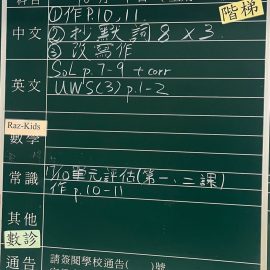 階梯
中文
①作P.10,11
②抄默詞8×3
③改寫作
英文
SOL p.7-9 + corr
UWS(3) p.1-2
Raz-Kids
數學
常識
17/10單元評估(第一、二課)
作p.10-11
其他
數診
通告
請簽閱學校通告( )號